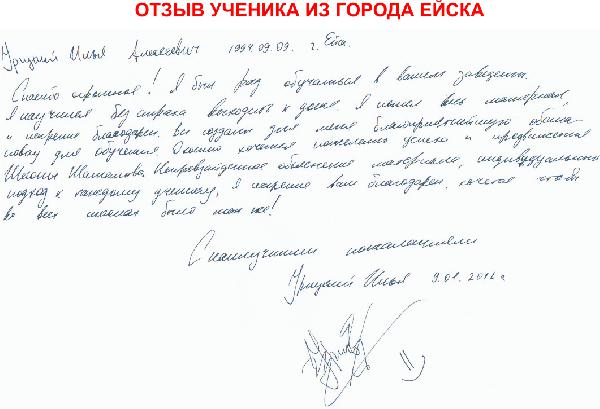 ОТЗЫВ УЧЕНИКА ИЗ ГОРОДА ЕЙСКА
Урицкий Илья Алексеевич 1994.09.09. г. Ейск.
Спасибо огромное! Я был рад обучаться в вашем заведении.
Я научился без страха выходить к доске. Я понял весь материал,
и искренне благодарен. Вы создали для меня благоприятнейшую обста-
новку для обучения. Хочется пожелать успеха и продвижения
Школы Шаталова. Непревзойденное объяснение материала, индивидуальный
подход к каждому ученику, Я искренне вам благодарен, хочется чтобы
во всех школах было так же!
С наилучшими пожеланиями
Урицкий Илья 9.01.2012 г